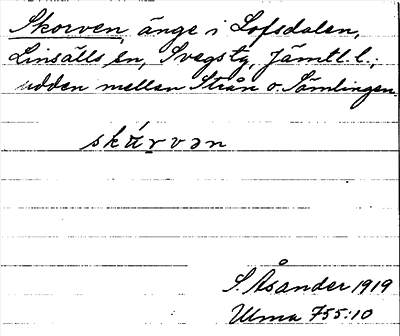 Skorven, änge i Lofsdalen,
Linsälls sn, Svegstg, Jämtl. l.;
udden mellan Strån o. Sämlingen.
skárvən
S. Åsander 1919
Ulma 755:10